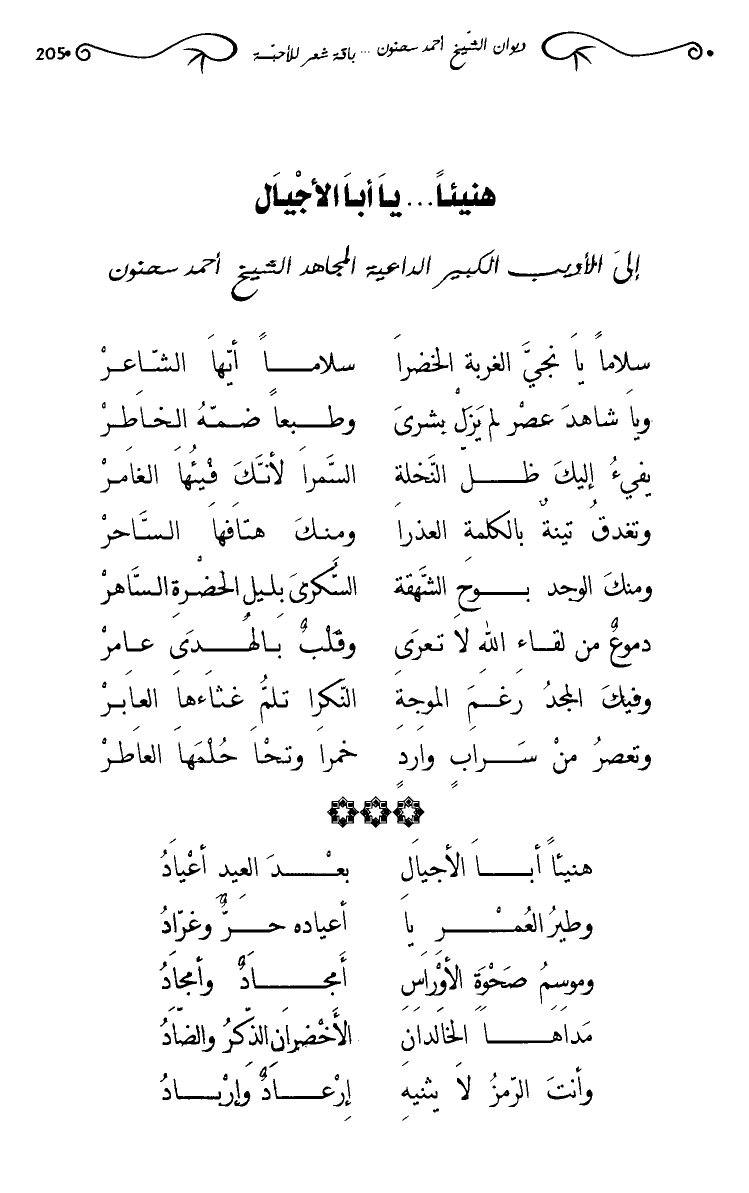 ديوان الشّيخ أحمد سحنون ... باقة شعر للأحبّة 205
هنيئاً... يا أبا الأجْيال
إلى الأديب الكبير الداعية المجاهد الشيخ أحمد سحنون
سلاماً يا نجيَّ الغربة الخضرا سلاماً أيّها الشّاعرْ
ويا شاهدَ عصْرٍ لم يَزَلْ بشرى وطبعاً ضمّهُ الخاطرْ
يفيءُ إليكَ ظلّ النّخلة السَّمرا لأنَّكَ فَيْئُها الغامرْ
وتغدقُ تينةٌ بالكلمة العذرا ومنكَ هتافها السَّاحرْ
ومنكَ الوجد بوحِ الشّهقة السَّكرى بليلِ الحضْرةِ السَّاهرْ
دموعٌ من لقاء الله لا تعرَى وقلْبٌ بالهُدَى عامرْ
وفيكَ المجدُ رغمَ الموجةِ النّكرا تلمُّ غثاءها العابرْ
وتعصرُ منْ سَرابٍ واردٍ خمرا وتحْا حُلْمَها العاطرْ
هنيئاً أبا الأجيالِ بعْدَ العيدِ أعْيادُ
وطيرُ العُمْر يا أعياده حرٌّ وغرّادُ
وموسِمُ صَحْوَةِ الأوْراسِ أَمجادٌ وأمجادُ
مَداها الخالدانِ الأَخْضرانِ الذّكرُ والضّادُ
وأنتَ الرّمزُ لا يثنيهِ إرْعادٌ وإرْبادُ